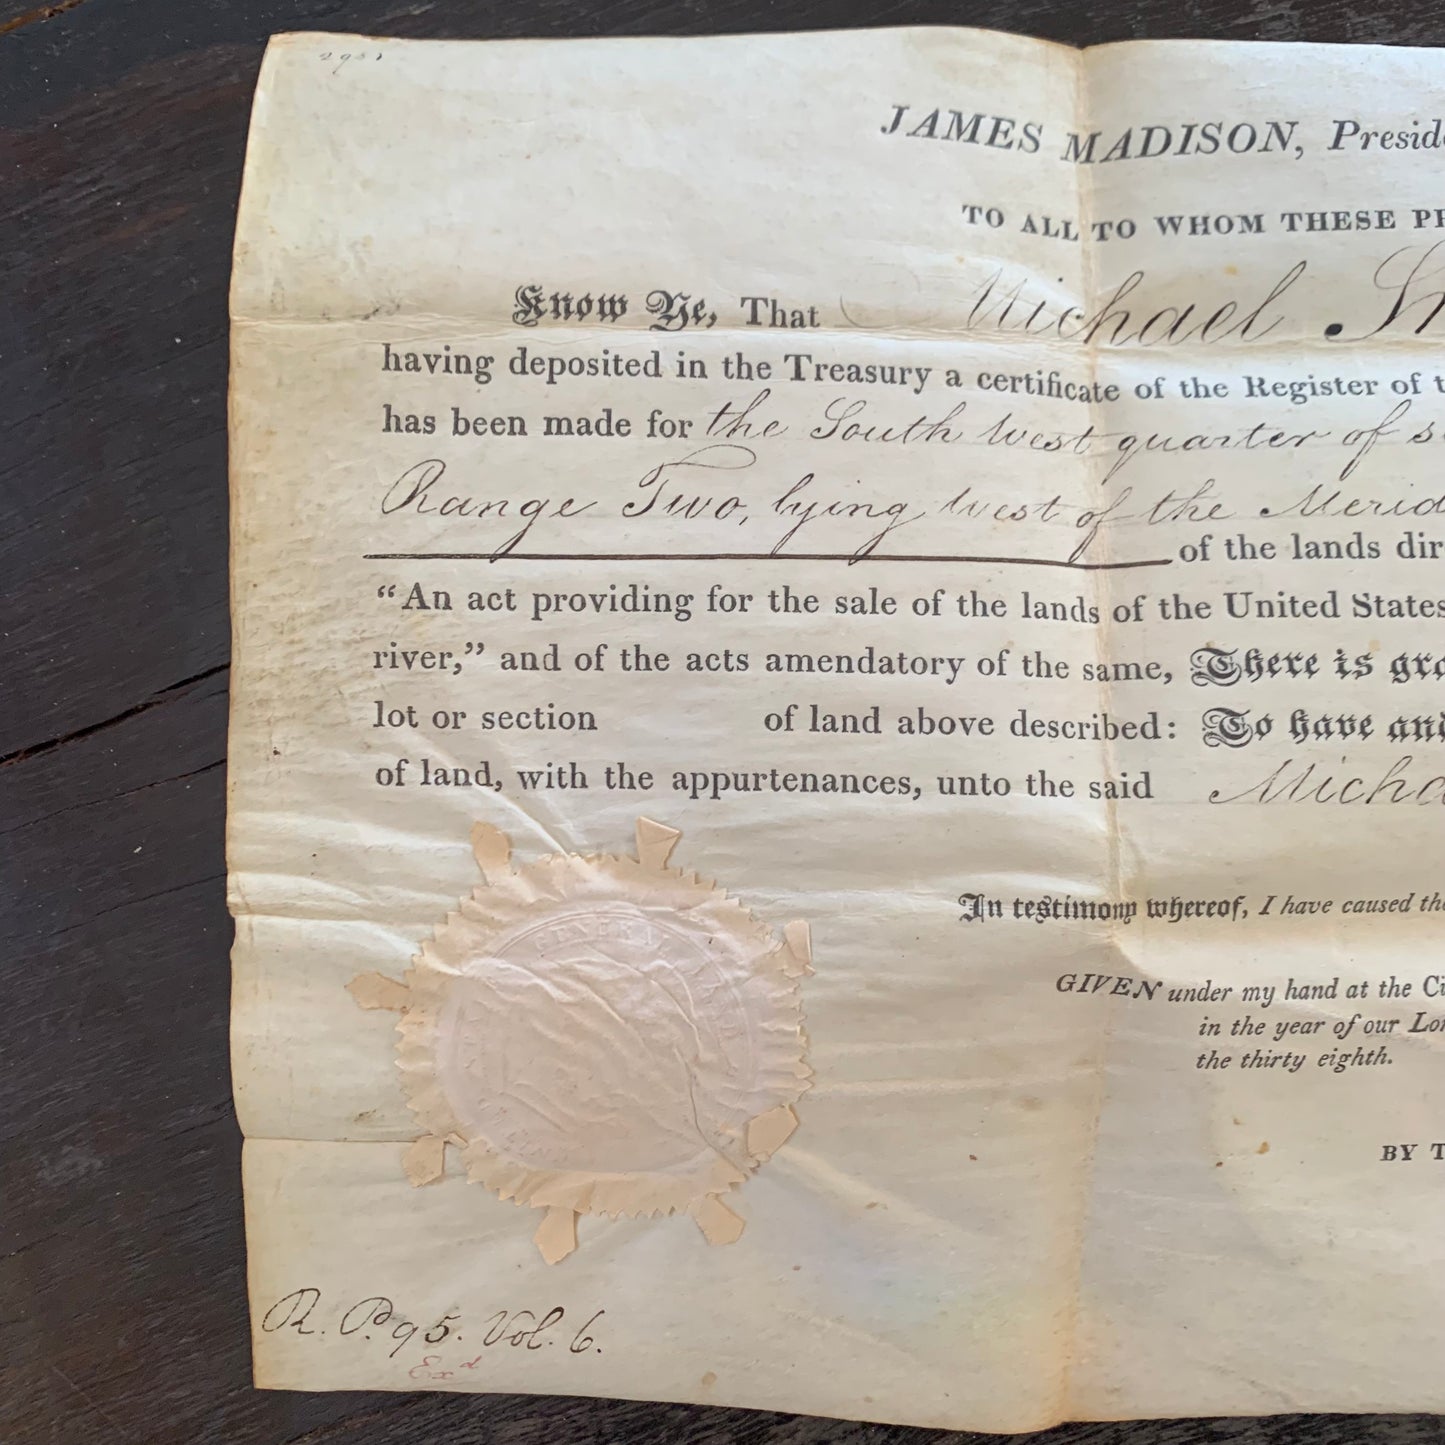 JAMES MADISON, Presid
TO ALL TO WHOM THESE PR
Know Ye, That Michael
having deposited in the Treasury a certificate of the Register of t
has been made for the South west quarter of s
Range Two, lying west of the Merid
of the lands dir
“An act providing for the sale of the lands of the United States
river,” and of the acts amendatory of the same, There is gra
lot or section of land above described: To have and
of land, with the appurtenances, unto the said Micha
In testimony whereof, I have caused the
GENERAL
GIVEN under my hand at the Ci
in the year of our Lor
the thirty eighth.
BY T
R. P. 95. Vol. 6.
Exd